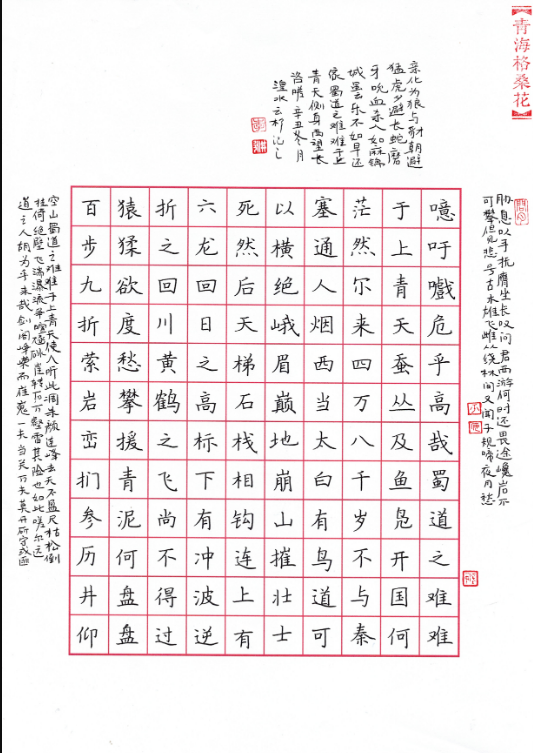 青海格桑花
噫吁嚱危乎高哉蜀道之难难
于上青天蚕丛及鱼凫开国何
茫然尔来四万八千岁不与秦
塞通人烟西当太白有鸟道可
以横绝峨眉巅地崩山摧壮士
死然后天梯石栈相钩连上有
六龙回日之高标下有冲波逆
折之回川黄鹤之飞尚不得过
猿猱欲度愁攀援青泥何盘盘
百步九折萦岩峦扪参历井仰
胁息以手抚膺坐长叹问君西游何时还畏途巉岩不
可攀但见悲号古木雄飞雌从绕林间又闻子规啼夜月愁
空山蜀道之难难于上青天使人听此凋朱颜连峰去天不盈尺枯松倒
挂倚绝壁飞湍瀑流争喧豗砯崖转石万壑雷其险也如此嗟尔远
道之人胡为乎来哉剑阁峥嵘而崔嵬一夫当关万夫莫开所守或匪
亲化为狼与豺朝避
猛虎夕避长蛇磨
牙吮血杀人如麻锦
城虽云乐不如早还
家蜀道之难难于上
青天侧身西望长
咨嗟 辛丑冬月
湟水云杉记之